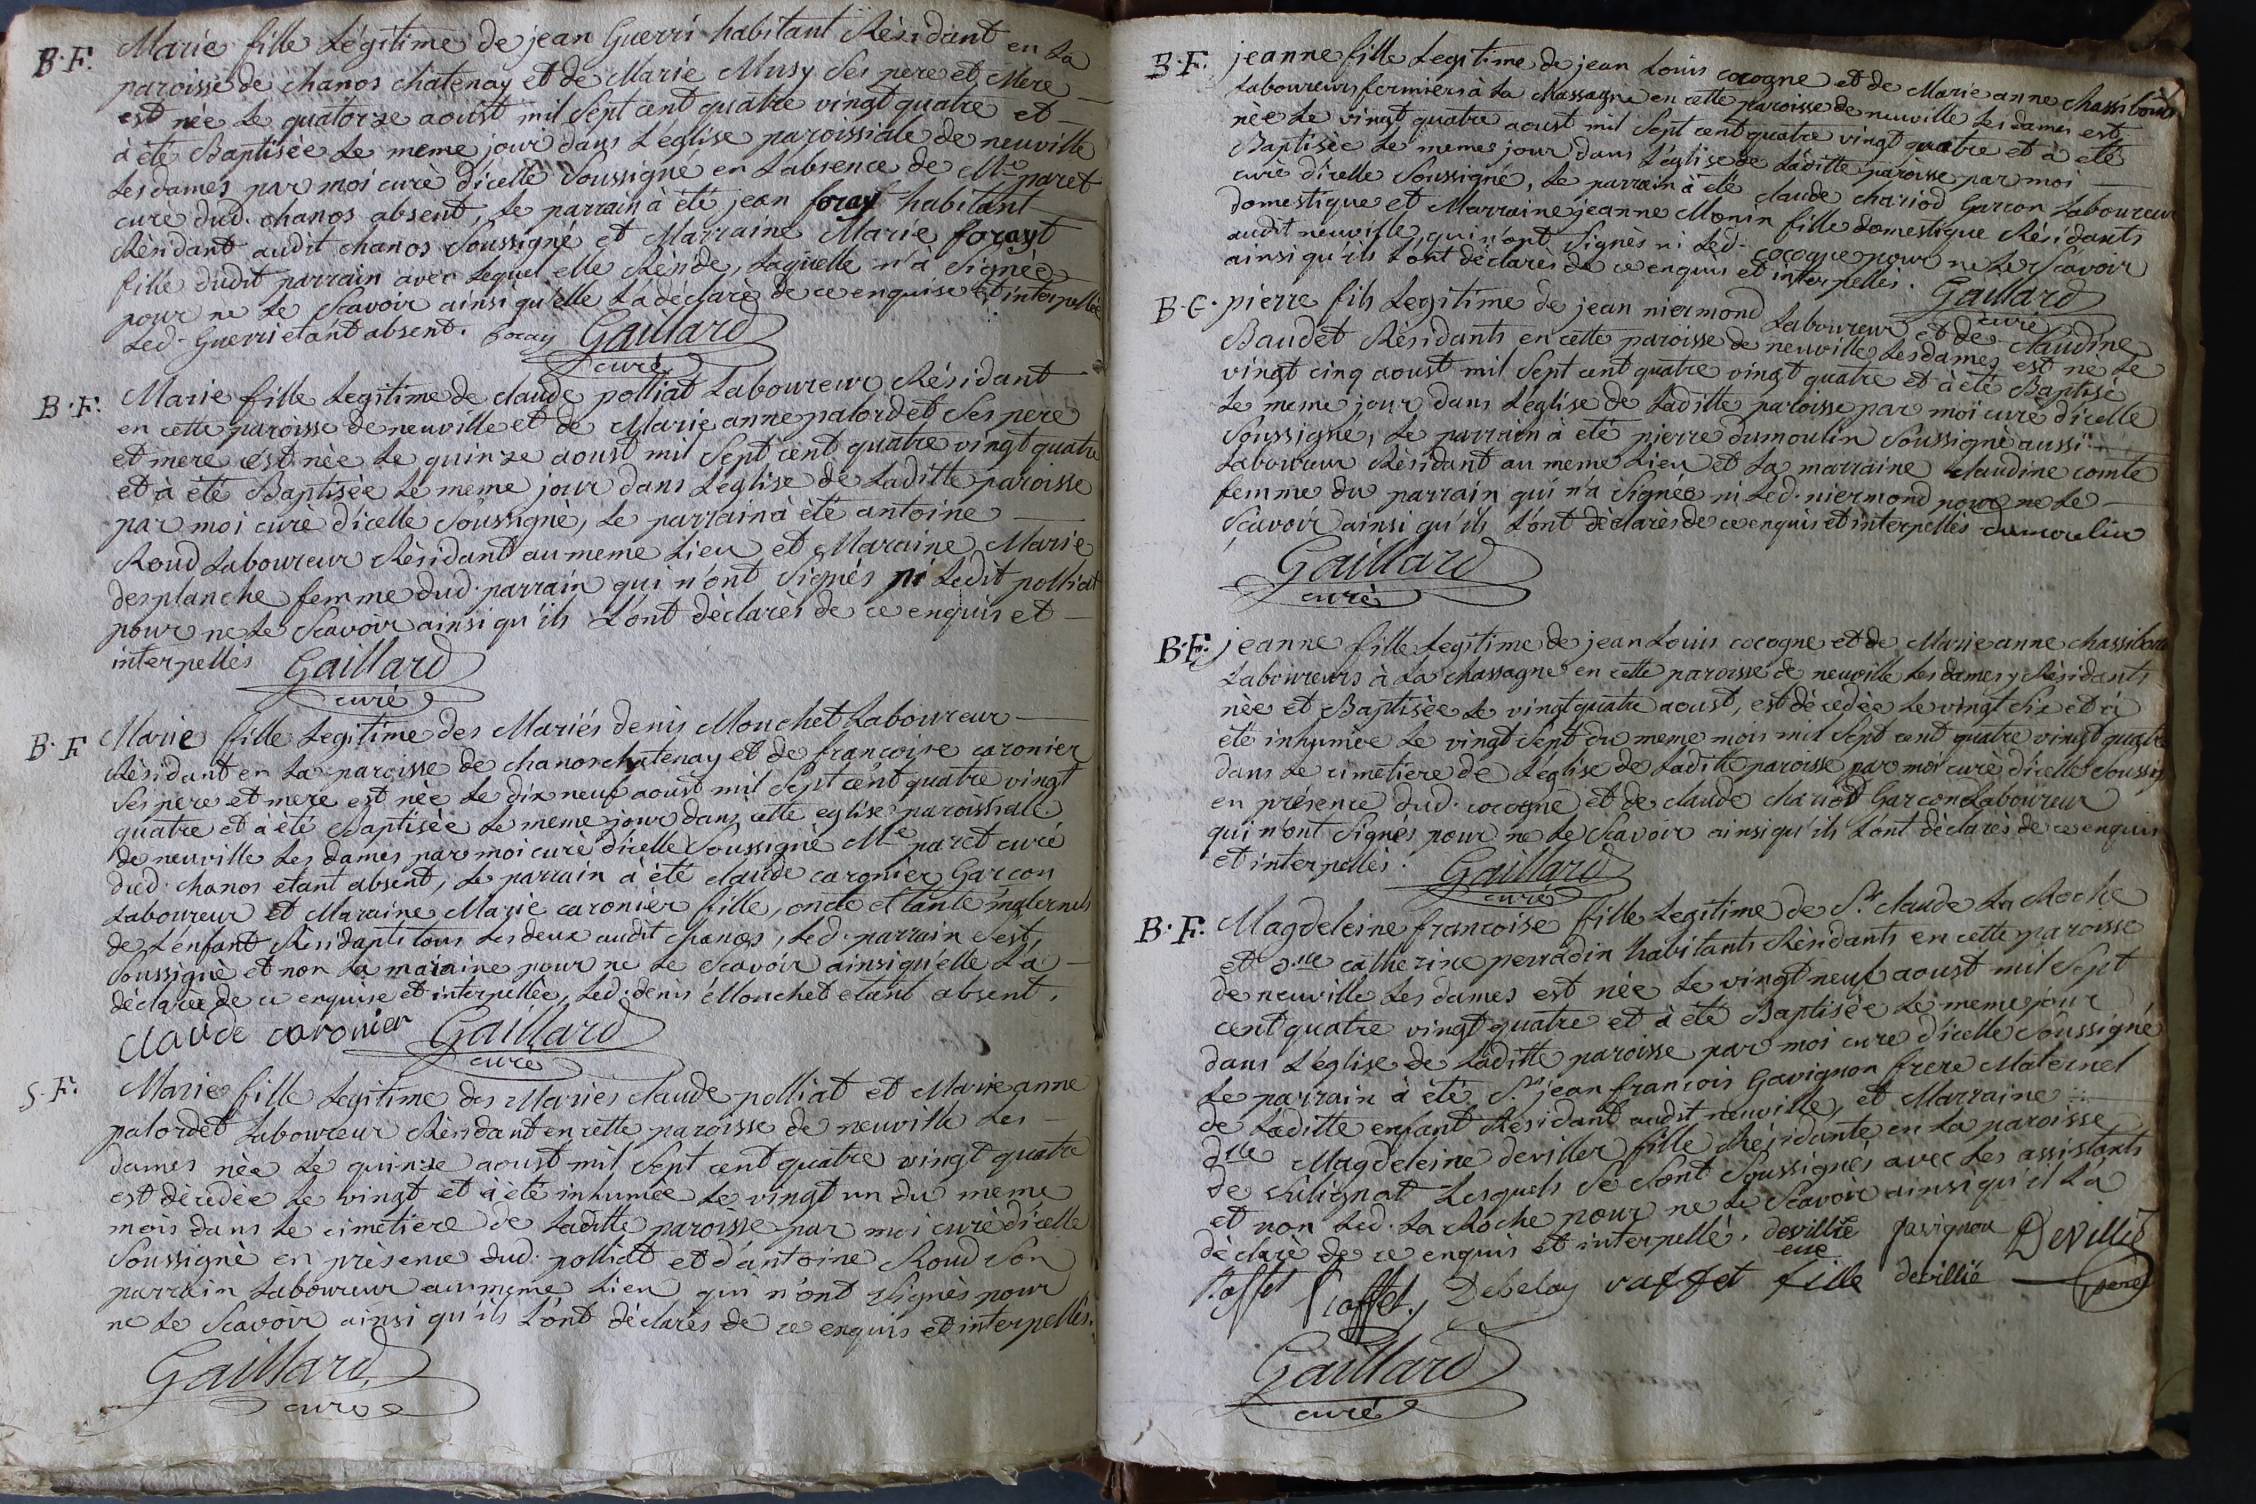 B. F. Marie fille Légitime de jean Guerri habitant Résidant en La
paroisse de chanos chatenay et de Marie Musy Ses pere et Mere
est née Le quatorze aoust mil Sept cent quatre vingt quatre et
à été Baptisée Le meme jour dans L'église paroissiale de neuville
Les dames par moi curé d'icelle Soussigné en L'absence de Mre paret
curé dud. chanos absent, Le parrain à été jean foray habitant
Résidant audit chanos Soussigné et Marraine Marie forayt
fille dudit parrain avec Lequel elle Réside, Laquelle n'a Signée
pour ne Le Scavoir ainsi qu'elle L'a déclaré de ce enquise et interpellée
Led. Guerri etant absent. foray Gaillard
curé
B. F. Marie fille Legitime de claude polliat Laboureur Résidant
en cette paroisse de neuville et de Marie anne palordet Ses pere
et mere est née Le quinze aoust mil Sept cent quatre vingt quatre
et à été Baptisée Le meme jour dans L'église de Laditte paroisse
par moi curé d'icelle Soussigné, Le parrain à été antoine
Roud Laboureur Résidant au meme Lieu et Maraine Marie
desplanche femme dud. parrain qui n'ont Signés ni Ledit polliat
pour ne Le Scavoir ainsi qu'ils L'ont déclarés de ce enquis et
interpellés Gaillard
curé
B. F Marie fille Legitime des Mariés denis Mouchet Laboureur
Résidant en La paroisse de chanos chatenay et de francoise caronier
Ses pere et mere est née Le dix neuf aoust mil Sept cent quatre vingt
quatre et à été Baptisée Le meme jour dans cette eglise paroissiale
de neuville Les dames par moi curé d'icelle Soussigné Mre paret curé
dud. chanos etant absent, Le parrain à été claude caronier Garcon
Laboureur et Maraine Marie caronier fille, oncle et tante maternels
de L'enfant Résidants tous Les deux audit chanos, Led. parrain S'est
Soussigné et non La maraine pour ne Le Scavoir ainsi qu'elle L'a
déclaré de ce enquise et interpellée, Led. denis Mouchet etant absent.
claude caronier Gaillard
curé
S. F. Marie fille Legitime des Mariés claude polliat et Marie anne
palordet Laboureur Résidant en cette paroisse de neuville Les
dames née Le quinze aoust mil Sept cent quatre vingt quatre
est décédée Le vingt et à été inhumée Le vingt un du meme
mois dans Le cimetiere de Laditte paroisse par moi curé d'icelle
Soussigné en présence dud. polliat et d'antoine Roud Son
parrain Laboureur au meme Lieu qui n'ont Signés pour
ne Le Scavoir ainsi qu'ils L'ont déclarés de ce enquis et interpellés.
Gaillard
curé
B. F. jeanne fille Legitime de jean Louis cocogne et de Marie anne chassibout
Laboureurs fermiers à La chassagne en cette paroisse de neuville Les dames est
née Le vingt quatre aoust mil Sept cent quatre vingt quatre et à été
Baptisée Le meme jour dans L'église de Laditte paroisse par moi
curé d'icelle Soussigné, Le parrain à été claude chariod Garcon Laboureur
domestique et Marraine jeanne Monin fille domestique Résidants
audit neuville, qui n'ont Signés ni Led. cocogne pour ne Le Scavoir
ainsi qu'ils L'ont déclarés de ce enquis et interpellés. Gaillard
curé
B. G. pierre fils Legitime de jean niermond Laboureur et de Claudine
Baudet Résidants en cette paroisse de neuville Les dames est né Le
vingt cinq aoust mil Sept cent quatre vingt quatre et à été Baptisé
Le meme jour dans L'église de Laditte paroisse par moi curé d'icelle
Soussigné, Le parrain à été pierre dumoulin Soussigné aussi
Laboureur Résidant au meme Lieu et La marraine claudine comte
femme du parrain qui n'a Signée ni Led. niermond pour ne Le
Scavoir ainsi qu'ils L'ont déclarés de ce enquis et interpellés dumoulin
Gaillard
curé
B. F. jeanne fille Legitime de jean Louis cocogne et de Marie anne chassibout
Laboureurs à La chassagne en cette paroisse de neuville Les dames y Résidants
née et Baptisée Le vingt quatre aoust, est décédée Le vingt Six et à
été inhumée Le vingt Sept du meme mois mil Sept cent quatre vingt quatre
dans Le cimetiere de L'église de Laditte paroisse par moi curé d'icelle Soussig
en présence dud. cocogne et de claude chariod Garcon Laboureur
qui n'ont Signés pour ne Le Scavoir ainsi qu'ils L'ont déclarés de ce enquis
et interpellés. Gaillard
curé
B. F. Magdeleine francoise fille Legitime de Sr claude La Roche
et dlle catherine perradin habitants Résidants en cette paroisse
de neuville Les dames est née Le vingt neuf aoust mil Sept
cent quatre vingt quatre et à été Baptisée Le meme jour
dans L'église de Laditte paroisse par moi curé d'icelle Soussigné
Le parrain à été Sr jean francois Gavignon frere Maternel
de Laditte enfant Résidant audit neuville, et Marraine
dlle Magdeleine deviller fille Résidante en La paroisse
de Sulignat Lesquels Se Sont Soussignés avec Les assistants
et non Led. La Roche pour ne Le Scavoir ainsi qu'il L'a
déclaré de ce enquis et interpellé. devillie gavignon Devillié
Raffet Raffet Debelay raffet fille devillié pere
Gaillard
curé